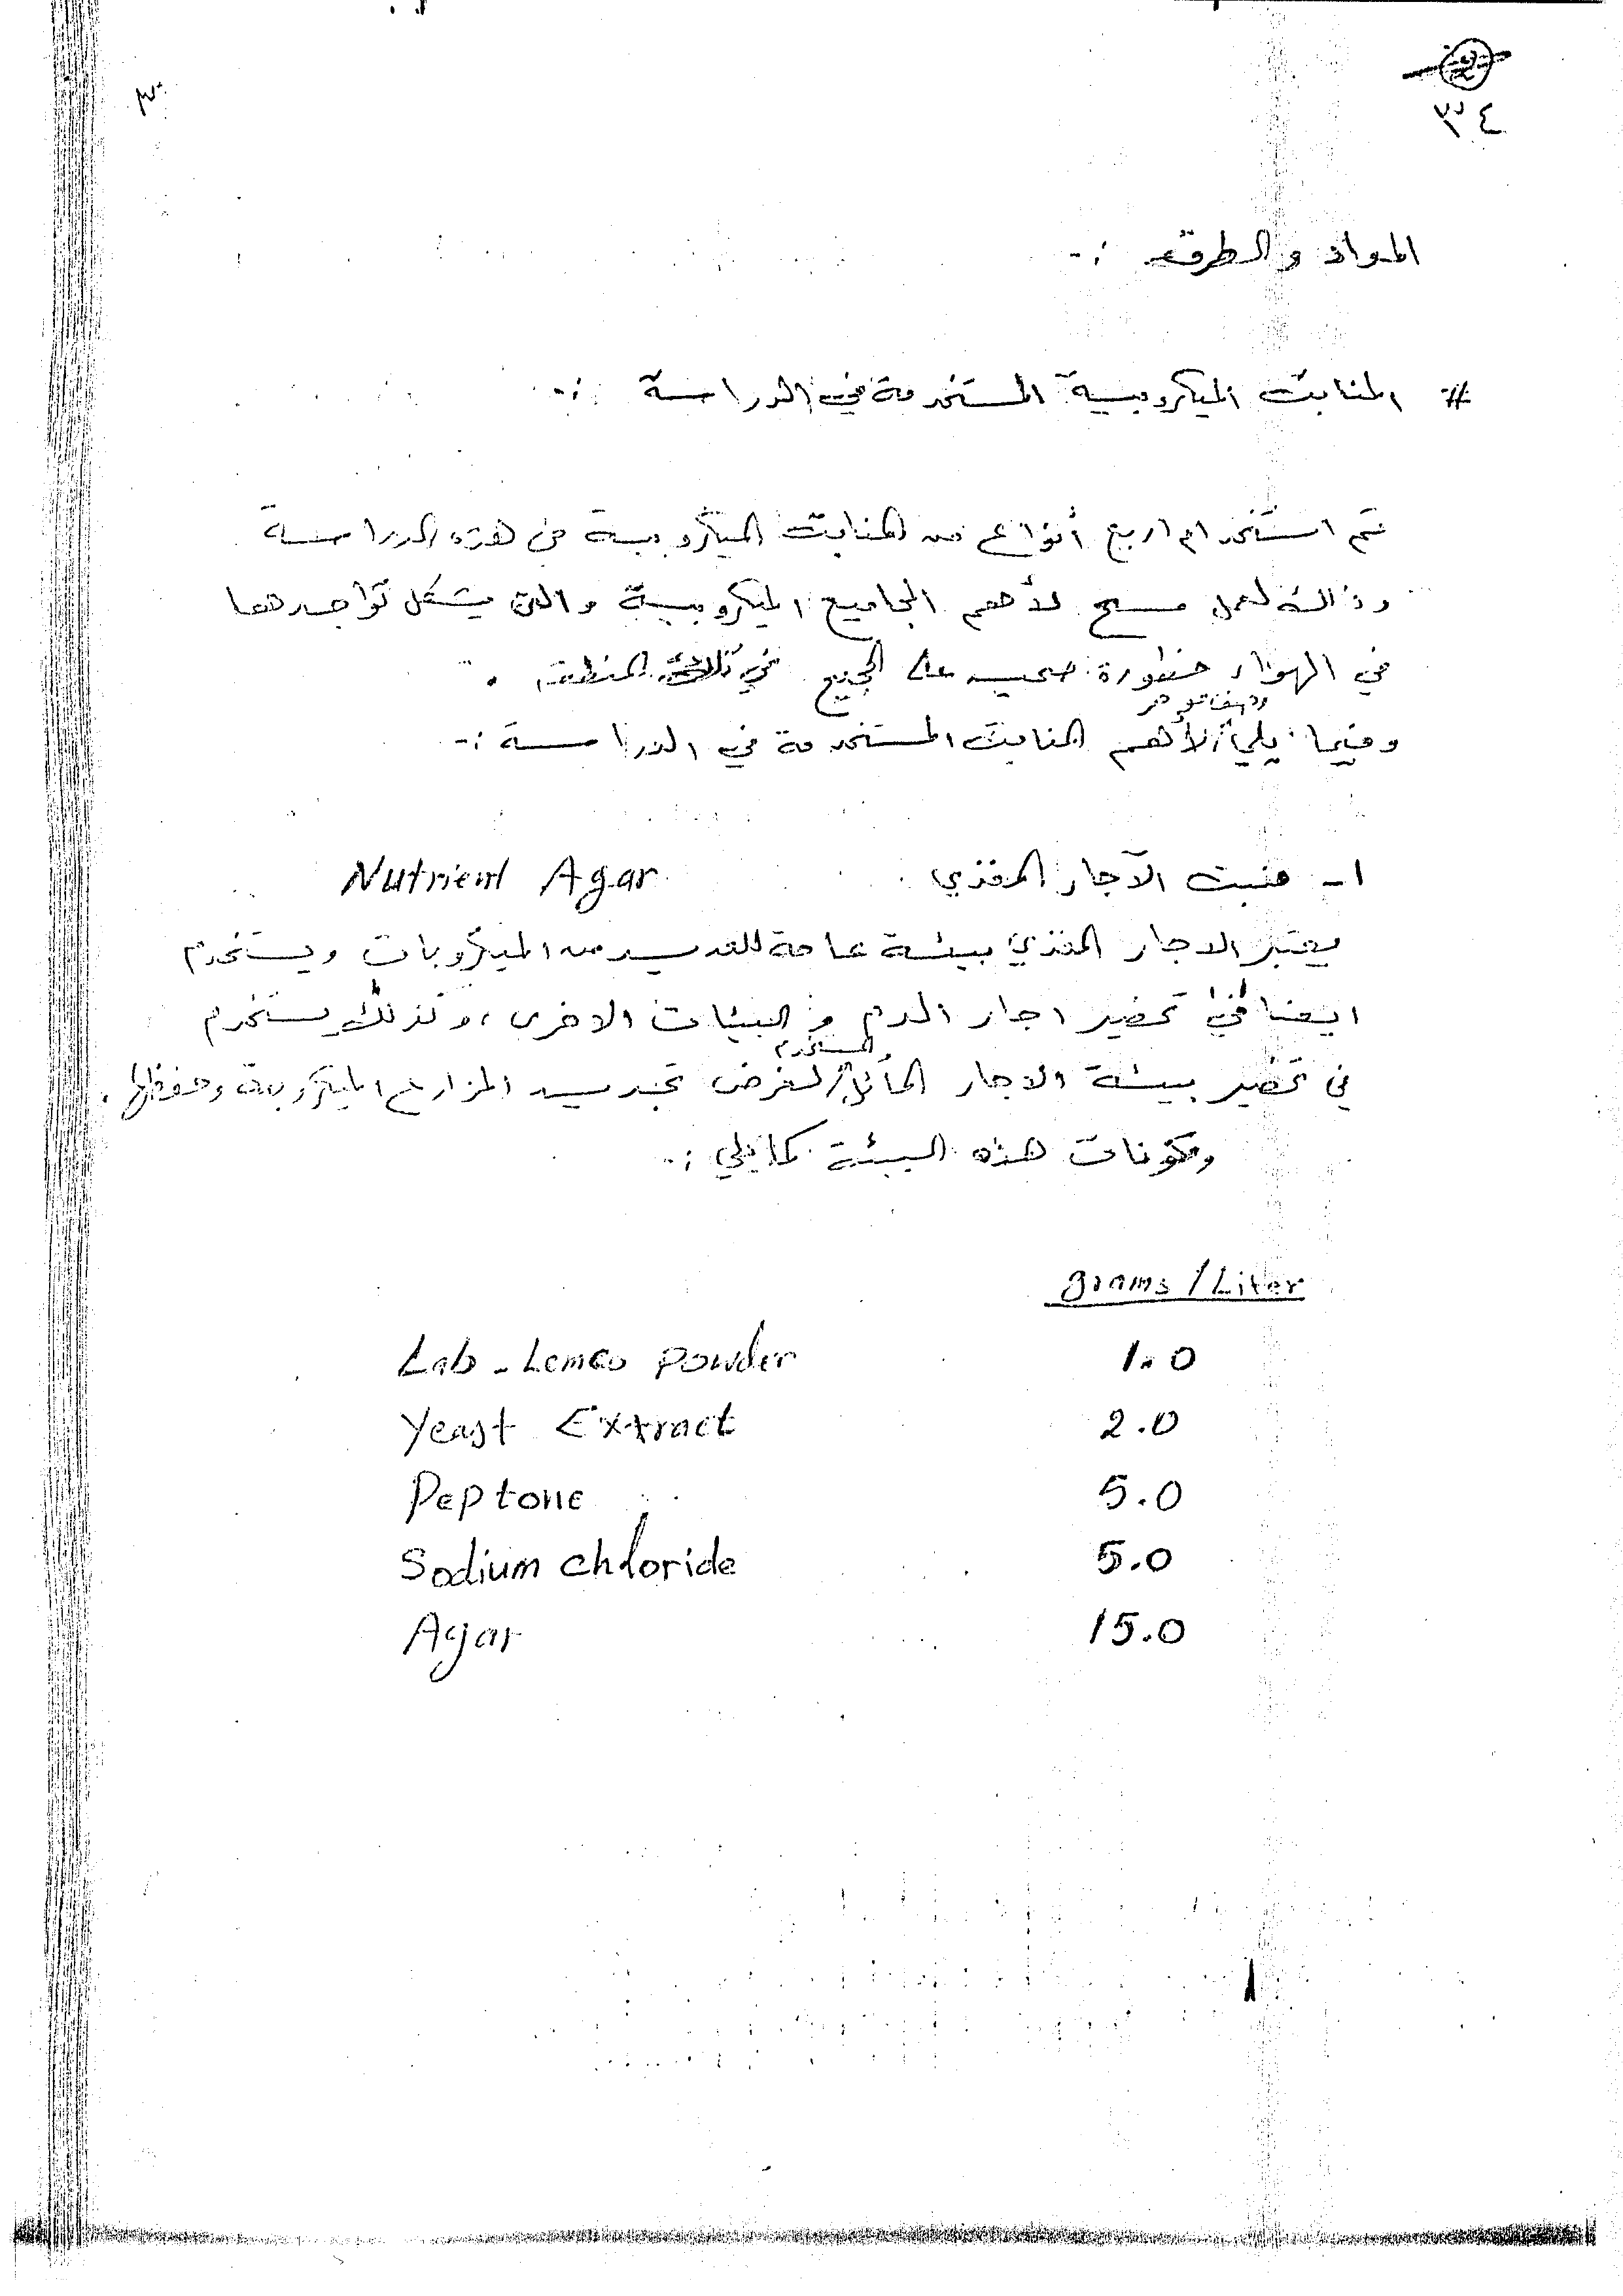 ٣٤
المواد والطرق :-
# المنابت الميكروبية المستخدمة في الدراسة :-
تم استخدام اربع أنواع من المنابت الميكروبية في هذه الدراسة
وذالك لعمل مسح لأهم المجاميع الميكروبية والتي يشكل تواجدها
في الهواء خطورة صحيه على الجميع في تلك المنطقة .
وفيما يلي لأهم المنابت المستخدمة في الدراسة :-
١- منبت الآجار المغذي Nutrient Agar
يعتبر الاجار المغذي بيئة عامة للعديد من الميكروبات ويستخدم
ايضا في تحضير اجار الدم و البيئات الاخرى ، وكذلك يستخدم
المستخدم
في تحضير بيئة الاجار المائل لغرض تجديد المزارع الميكروبية وحفظها .
ومكونات هذه البيئة كما يلي :-
grams / Liter
Lab - Lemco powder 1.0
Yeast Extract 2.0
Peptone 5.0
Sodium chloride 5.0
Agar 15.0